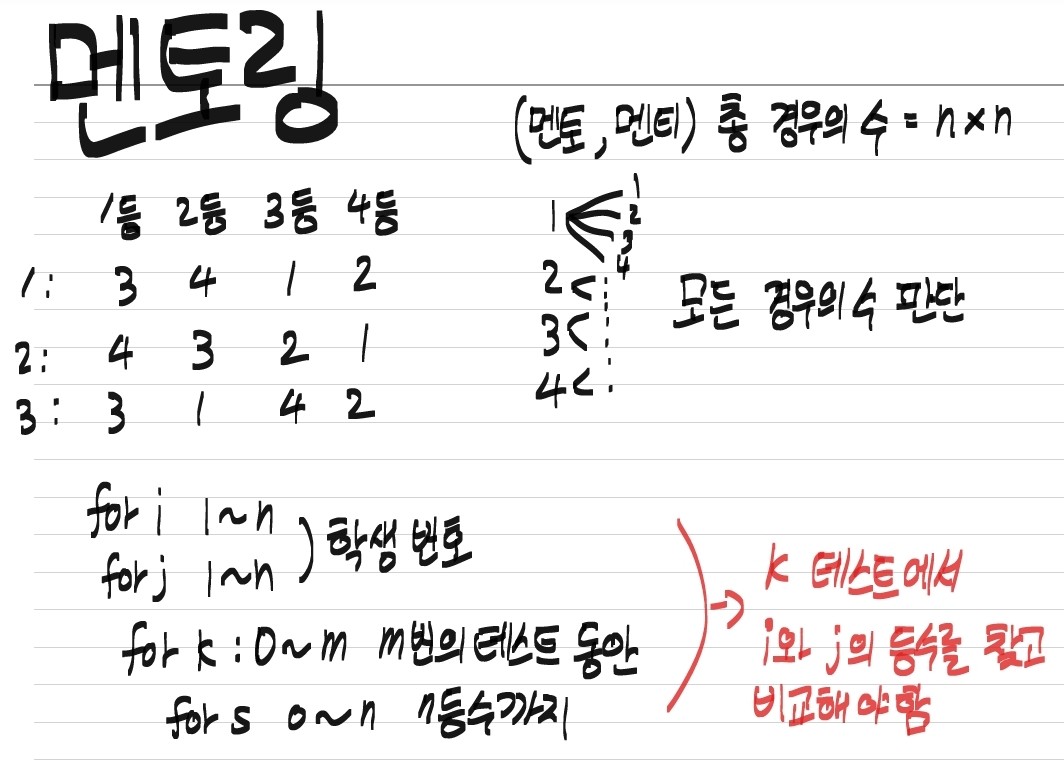 멘토링
(멘토, 멘티) 총 경우의 수 = n×n
1등 2등 3등 4등
1: 3 4 1 2
2: 4 3 2 1
3: 3 1 4 2
1 < 1 2 3 4
2 <
3 <
4 <
모든 경우의 수 판단
for i 1~n
for j 1~n
) 학생 번호
for k : 0~m m번의 테스트 동안
for s 0~n n등수까지
→ K 테스트에서
i와 j의 등수를 찾고
비교해야함